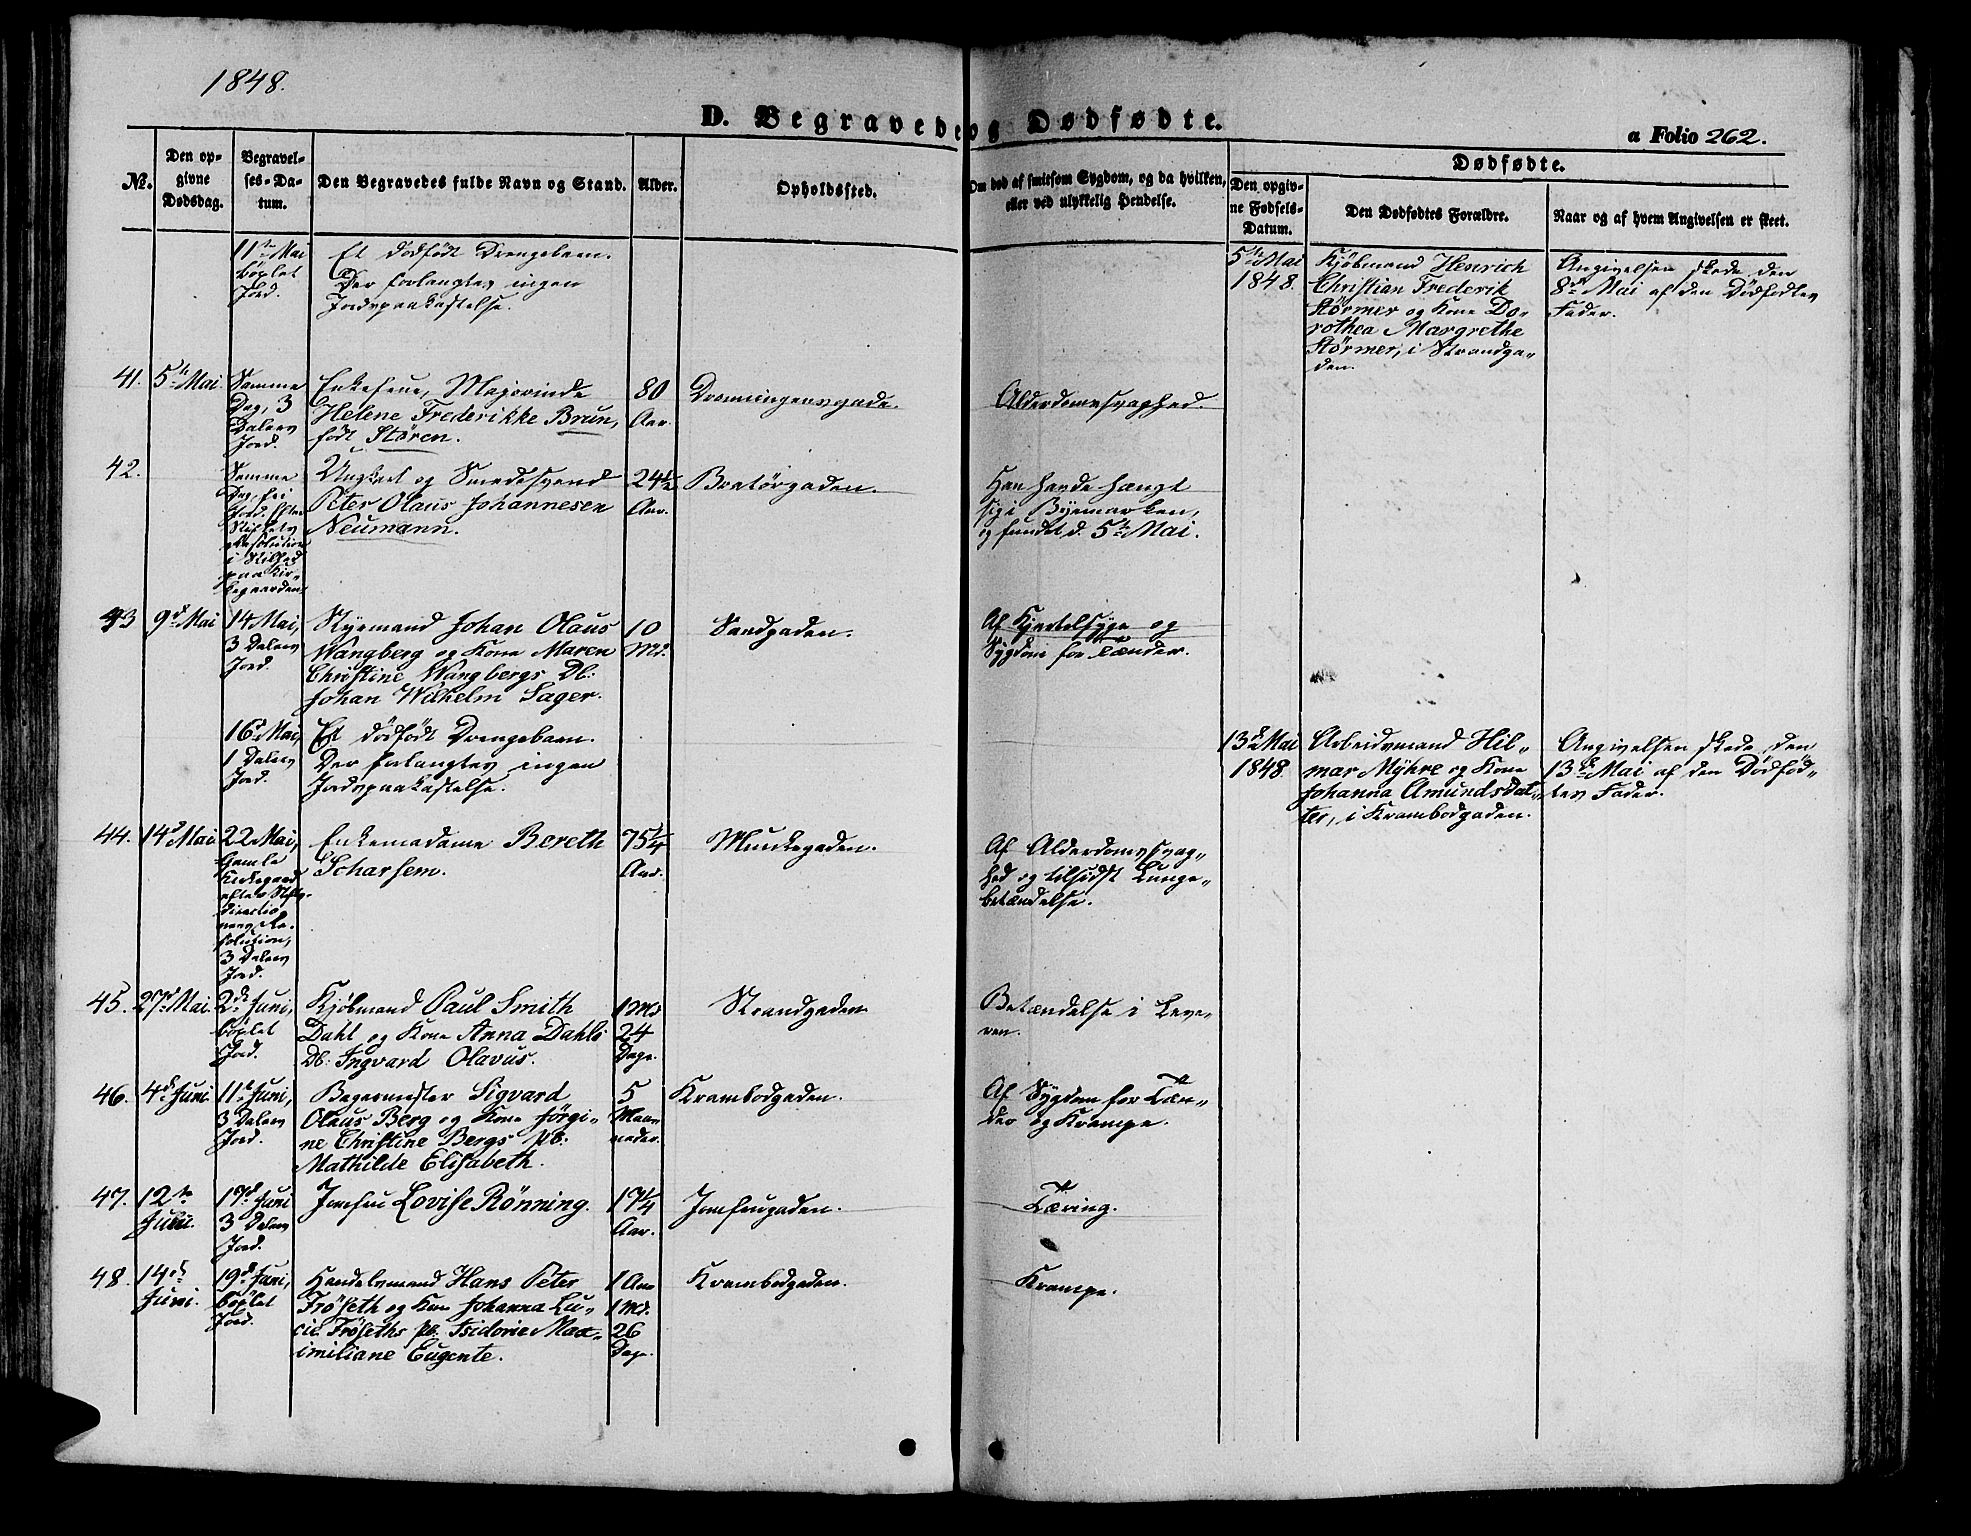 1848.
D. Begravede og Dødfødte.
a Folio 262.
No.
Den op-
givne
Dødsdag.
Begravel-
ses-Da-
tum.
Den Begravedes fulde Navn og Stand.
Alder.
Opholdssted.
Om død af smitsom Sygdom, og da hvilken,
eller ved ulykkelig Hendelse.
Dødfødte.
Den opgiv-
ne Fødsels-
Datum.
Den Dødfødtes Forældre.
Naar og af hvem Angivelsen er skeet.
11te Mai
kjøbt
Jord.
Et dødfødt Drengebarn.
Der forlangtes ingen
Jordspaakastelse.
5te Mai
1848.
Kjöbmand Henrich
Christian Frederik
Störmer og Kone Do-
rothea Margrethe
Störmer, i Strandga-
den.
Angivelsen skede den
8de Mai af den Dödfödtes
Fader.
41.
5te Mai
Samme
Dag, 3
Dalers
Jord.
Enkefrue, Majorinde
Helene Frederikke Brun,
født Stören.
80
Aar.
Dronningensgade.
Alderdomssvaghed.
42.
Samme
Dag, fri
Jord. Efter
Stiftets
Resolution
i Stilhed
paa Kir-
kegaarden.
Ungkarl og Smedesvend
Peter Olaus Johannesen
Neumann.
24½
Aar.
Bratörgaden.
Han havde hængt
sig i Byemarken,
og fundet d. 5te Mai.
43
9de Mai
14 Mai,
3 Dalers
Jord.
Styrmand Johan Olaus
Wangberg og Kone Maren
Christine Wangbergs Db:
Johan Wilhelm Sager.
10
Md.
Sandgaden.
Af Kjertelsyge og
Sygdom for Tænder.
16de Mai,
1 Dalers
Jord.
Et dödfödt Drengebarn.
Der forlangtes ingen
Jordspaakastelse.
13de Mai
1848.
Arbeidsmand Hil-
mar Myhre og Kone
Johanna Amundsdat-
ter, i Krambodgaden.
Angivelsen skede den
13de Mai af den Dödföd-
tes Fader.
44.
14de Mai
22 Mai,
Gamle
Kirkegaard
efter Stifts-
directio-
nens Re-
solution,
3 Dalers
Jord.
Enkemadame Bereth
Scharsem.
75¼
Aar.
Munkegaden.
Af Alderdomssvag-
hed og tilsidst Lunge-
betændelse.
45.
27de Mai.
2den Juni,
kjøbt
Jord.
Kjöbmand Paul Smith
Dahl og Kone Anna Dahls
Db: Ingvard Olavus.
1 Md
24
Dage.
Strandgaden
Betændelse i Leve-
ren.
46.
4de Juni
11te Juni,
3 Dalers
Jord.
Bagermester Sigvard
Olaus Berg og Kone Jörgi-
ne Christine Bergs Pb:
Mathilde Elisabeth.
5
Maa-
neder.
Krambodgaden.
Af Sygdom for Tæn-
der og Krampe.
47.
12te
Juni.
17de Juni
3 Dalers
Jord.
Jomfru Lovise Rönning.
17¼
Aar.
Jomfrugaden.
Tæring.
48.
14de
Juni.
19de Juni,
kjøbt
Jord.
Handelsmand Hans Peter
Fröseth og Kone Johanna Lu-
cie Fröseths Pb. Isidorie Max-
imiliane Eugente.
1 Aar
1 Md.
26
Dage.
Krambodgaden.
Krampe.